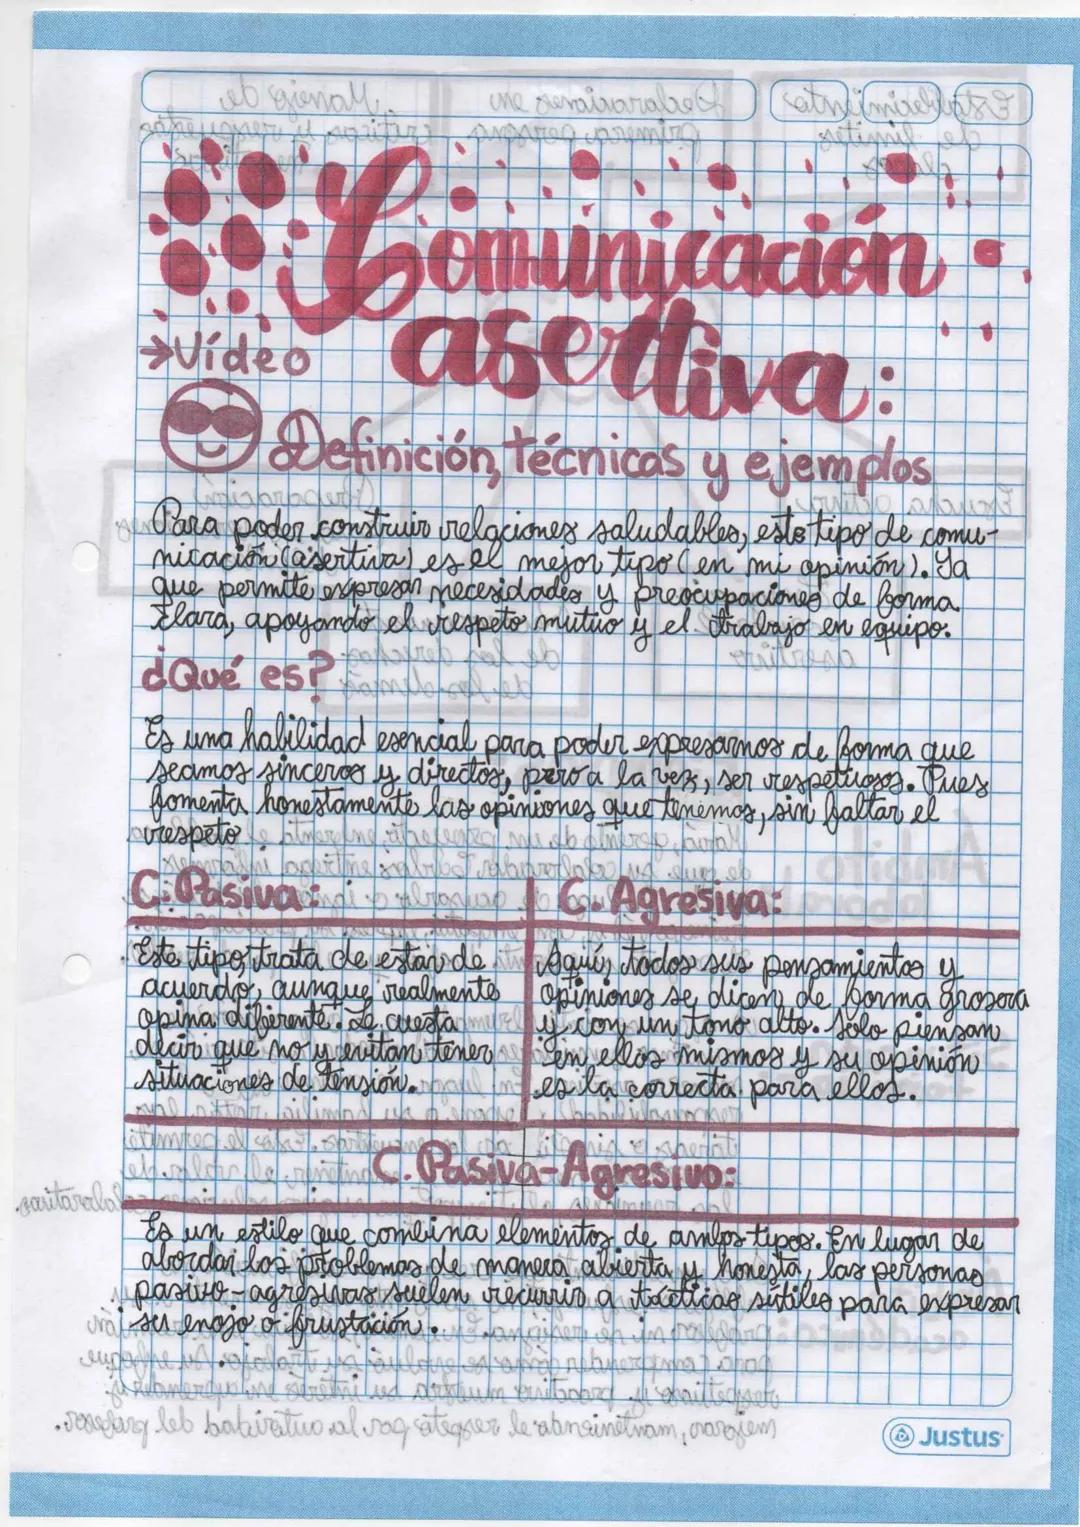 Comunicación
asertiva:
→Vídeo
Definición, técnicas y ejemplos
Para poder construir relaciones saludables, este tipo de comu-
nicación (asertiva) es el mejor tipo (en mi opinión). Ya
que permite expresar necesidades y preocupaciones de forma
clara, apoyando el respeto mutuo y el trabajo en equipo.
¿Qué es?
Es una habilidad esencial para poder expresarnos de forma que
seamos sinceros y directos, pero a la vez, ser respetuosos. Pues
fomenta honestamente las opiniones que tenemos, sin faltar el
respeto
C. Pasiva:
Este tipo, trata de estar de
acuerdo, aunque realmente
opina diferente. Le cuesta
decir que no y evitan tener
situaciones de tensión.
C. Agresiva:
Aquí, todos sus pensamientos y
opiniones se dicen de forma grosera
y con un tono alto. Solo piensan
en ellos mismos y su opinión
es la correcta para ellos.
C. Pasiva-Agresivo:
Es un estilo que combina elementos de ambos tipos. En lugar de
abordar los problemas de manera abierta y honesta, las personas
pasivo-agresivas suelen recurrir a tácticas sútiles para expresar
su enojo o frustación.
Justus